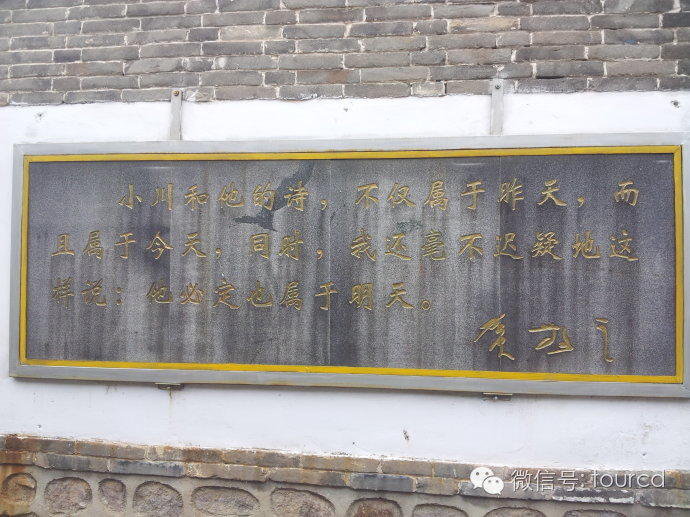 小川和他的诗，不仅属于昨天，而
且属于今天，同时，我还毫不迟疑地这
样说：他必定也属于明天。
贺敬之
微信号: tourcd